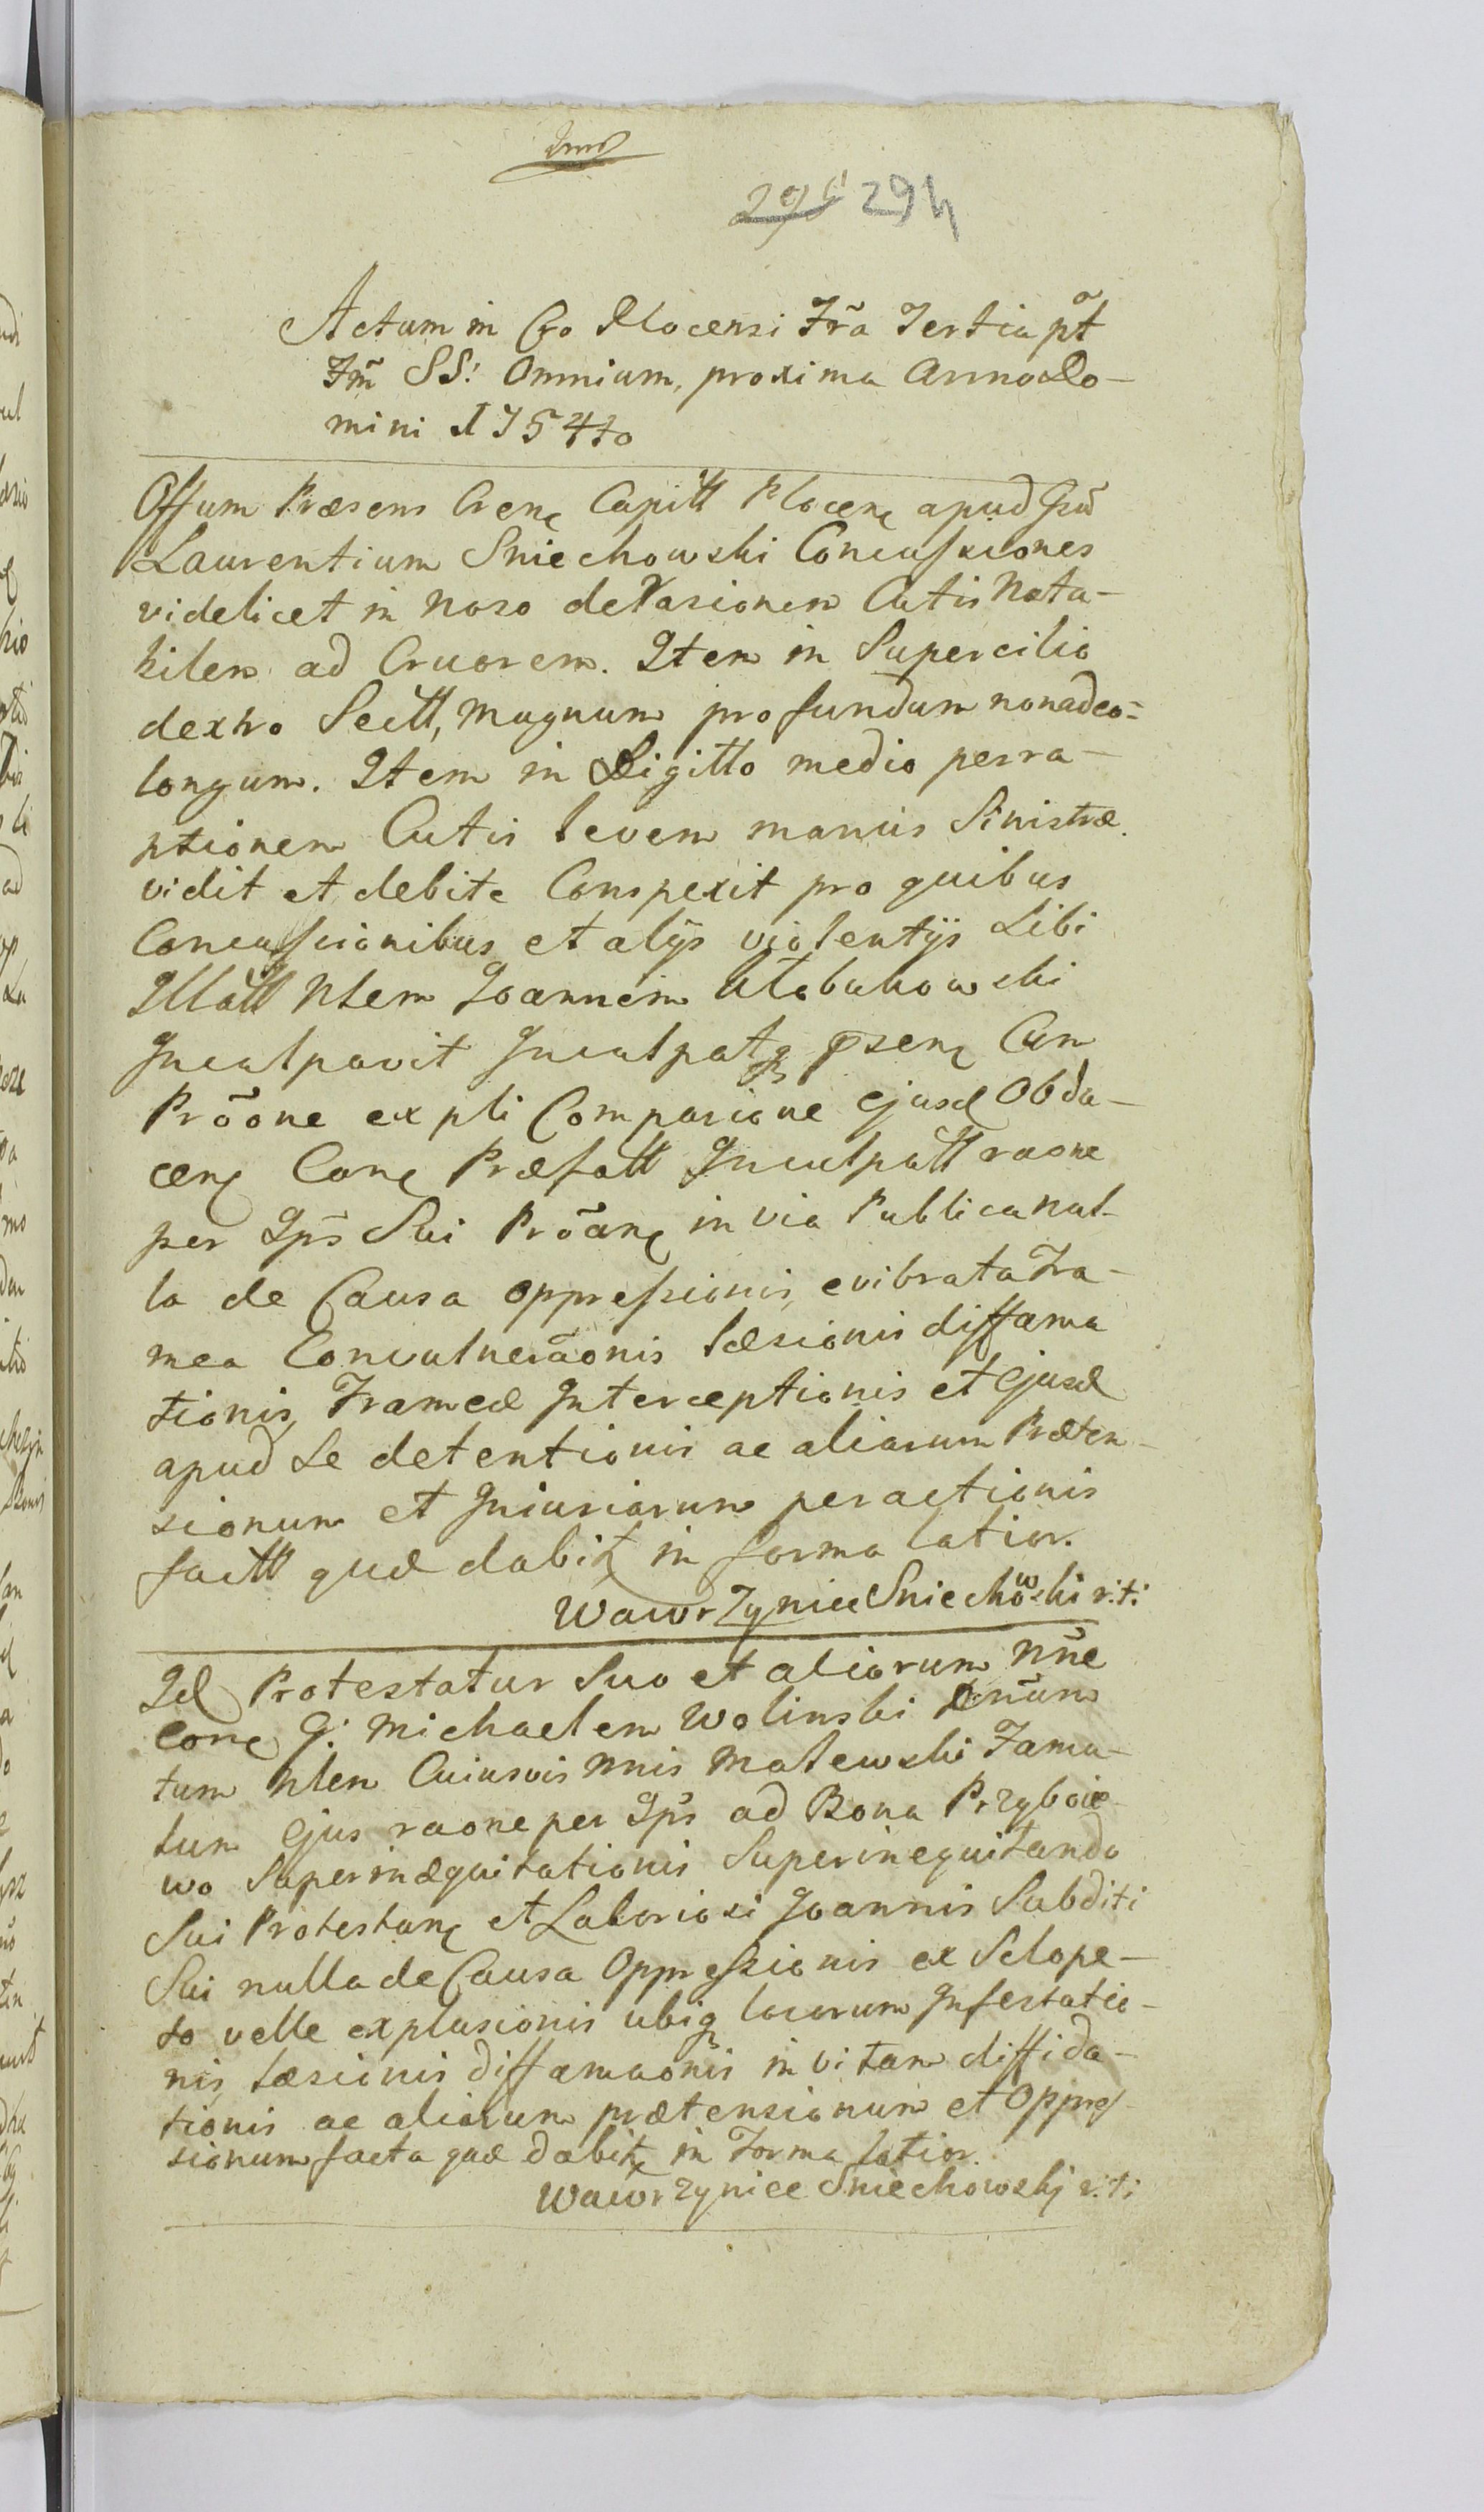 294 294
Actum in Cro Plocensi Fra Tertia pt
Fm SS: Omnium, proxima Anno Do-
mini 1754to
Offum Præsens Crenc Capitt Plocenc apud Gnu
Laurentium Sniechowski Concussiones
videlicet in Naso deRasionem Cutis Nota-
bilem ad Cruorem. Item in Supercilio
dextro Sectt, magnum profundum nonadeo=
longum. Item in Digitto medio perra-
ptionem Cutis levem manus Sinistræ
vidit et debite Conspexit pro quibus
Concussionibus et alijs violentijs Sibi
Illatt Nlem Joannem Klobukowski
Inculpavit Inculpatq psenc Cum
Prõone expli Comparione ejusd Obdu-
cenc Conc Præfatt Inculpatt raone
per Ips Sui Prõanc in via Publica nul-
la de Causa oppressionis, evibrata Fra-
mea Convulnerãonis læsionis diffama
tionis, Frameæ Interceptionis et Ejusd
apud Se detentionis ac aliarum Præten-
sionum et Iniuriarum peractionis
factt quæ dabit in forma latior.
Wawrzyniec Sniechowski r:t:
Id Protestatur Suo et aliorum Nne
Conc G: Michaelem Wolinski
tum Nlem Cuiusvis Nnis Malewski Famu-
lum Ejus raone per Ips ad Bona Przyboie
wo Superinæquitationis Superinequitando
Sui Protestanc et Laboriosi Joannis Subditi
Sui nulla de Causa Oppressionis ex Sclope-
to velle explusionis ubiq locorum Infestatio-
nis læsionis diffamaonis in vitam diffida-
tionis ac aliarum prætensionum et Oppres-
sionum facta quæ dabit in Forma latior.
Wawrzyniec Sniechowskj r:t: